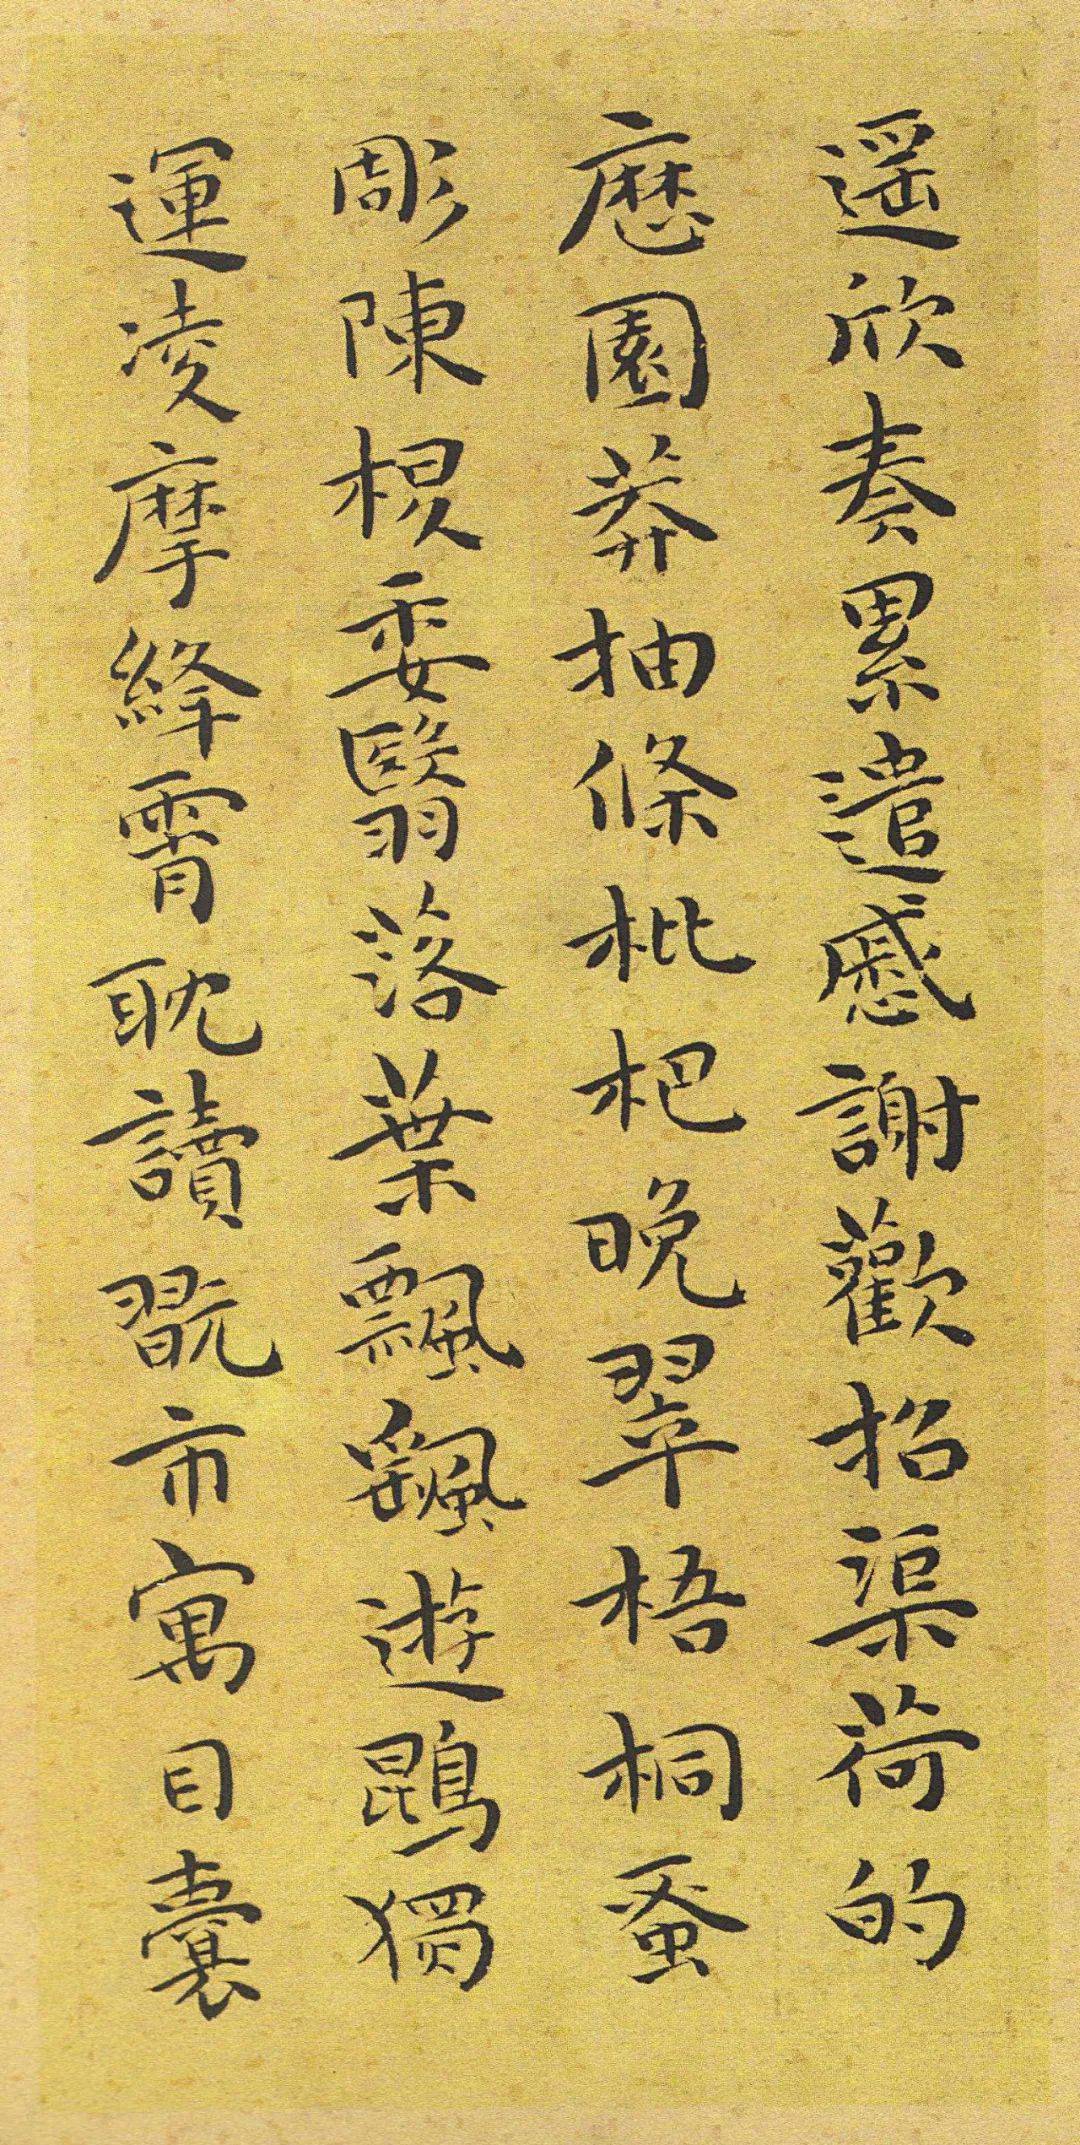 遥欣奏累遣慼謝歡招渠荷的
歴園莽抽條枇杷晚翠梧桐蚤
彫陳根委翳落葉飄颻遊鵾獨
運凌摩絳霄耽讀翫市寓目囊